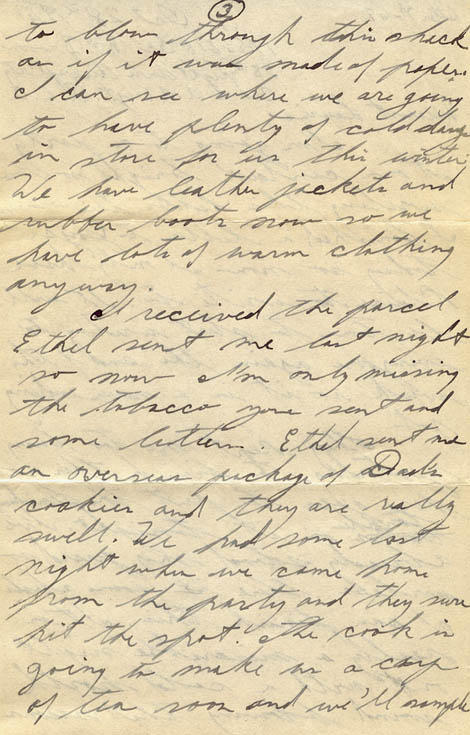 3
to blow through this shack
as if it was made of paper.
I can see where we are going
to have plenty of cold days
in store for us this winter.
We have leather jackets and
rubber boots now so we
have lots of warm clothing
anyway.
I received the parcel
Ethel sent me last night
so now I'm only missing
the tobacco you sent and
some letters. Ethel sent me
an overseas package of Dad's
cookies and they are really
swell. We had some last
night when we came home
from the party and they sure
hit the spot. The cook is
going to make us a cup
of tea soon and we'll sample